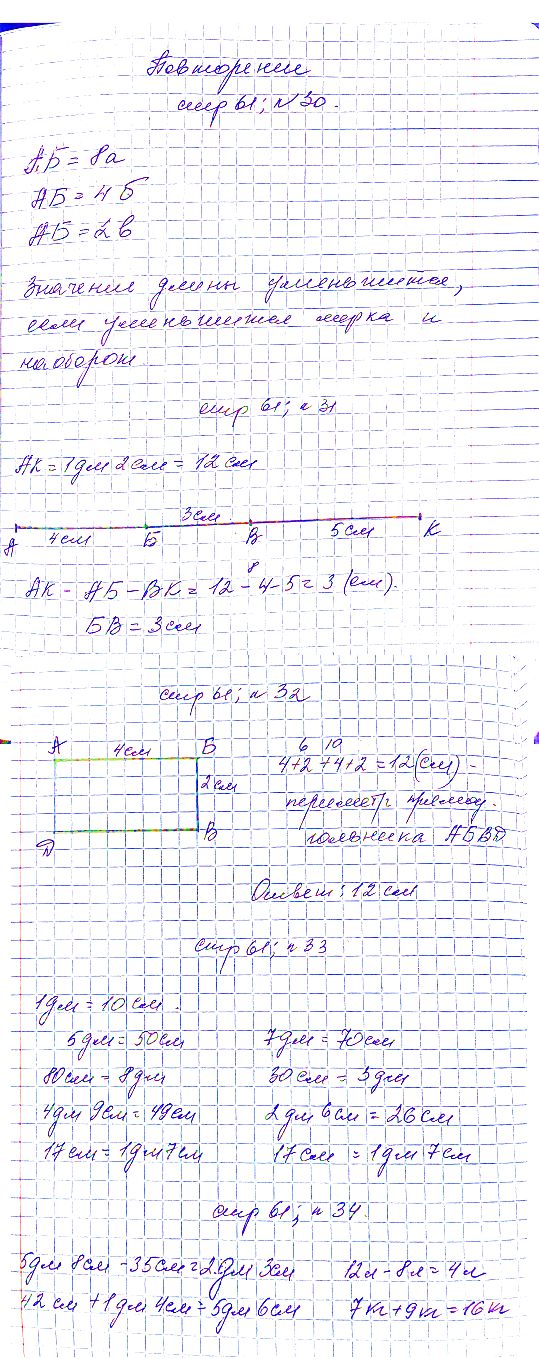 Повторение
стр 61; n 30.
АБ = 8а
АБ = 4 Б
АБ = 2 в
Значение длины уменьшится,
если уменьшится мерка и
наоборот
стр 61; n 31
АК = 1дм 2см = 12 см
3см
А 4см Б В 5см К
8
АК - АБ - ВК = 12 - 4 - 5 = 3 (см).
БВ = 3 см
стр 61; n 32
А 4см Б
2см
Д В
6 10
4+2+4+2 = 12(см) -
периметр прямоу-
гольника АБВД
Ответ: 12 см
стр 61; n 33
1дм = 10 см.
5дм = 50см 7дм = 70см
80см = 8дм 30см = 3дм
4дм 9см = 49см 2дм 6см = 26см
17см = 1дм 7см 17см = 1дм 7см
стр 61; n 34.
5дм 8см - 35см = 2дм 3см 12л - 8л = 4л
42см + 1дм 4см = 5дм 6см 7кг + 9кг = 16кг